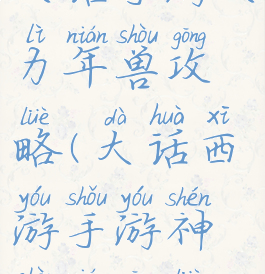 lì nián shòu gōng
力年兽攻
lüè dà huà xī
略(大话西
yóu shǒu yóu shén
游手游神